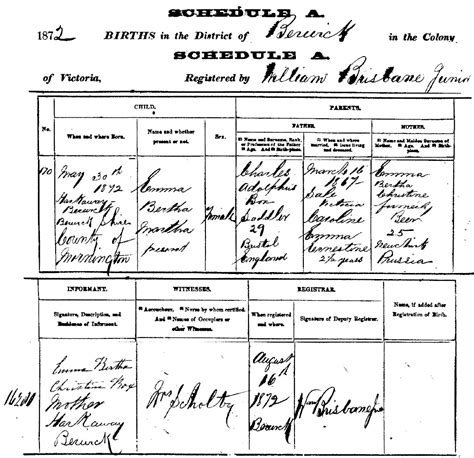 SCHEDULE A.
1872 BIRTHS in the District of Berwick in the Colony
SCHEDULE A.
of Victoria, Registered by William Brisbane Junior
CHILD.
PARENTS.
FATHER.
MOTHER.
No.
When and where Born.
Name and whether
present or not.
Sex.
Name and Surname, Rank,
or Profession of the Father
Age. And Birth-place.
When and where
married. Issue living
and deceased.
Name and Maiden Surname of
Mother.
Age. And Birth-place.
170
May 30th
1872
Harkaway
Berwick
Berwick Shire
County of
Mornington
Emma
Bertha
Martha
present
Female
Charles
Adolphus
Box
Saddler
29
Bristol
England
March 16
1867
Sale
Victoria
Caroline
Emma
Ernestine
2½ years
Emma
Bertha
Christine
formerly
25
Prussia
INFORMANT.
WITNESSES.
REGISTRAR.
Signature, Description, and
Residence of Informant.
Accoucheur. Nurse by whom certified.
And Names of Occupiers or
other Witnesses.
When registered
and where.
Signature of Deputy Registrar.
Name, if added after
Registration of Birth.
Emma Bertha
Christine Box
Mother
Harkaway
Berwick
Mrs Scholby
August
16th
1872
Berwick
Wm Brisbane Jr